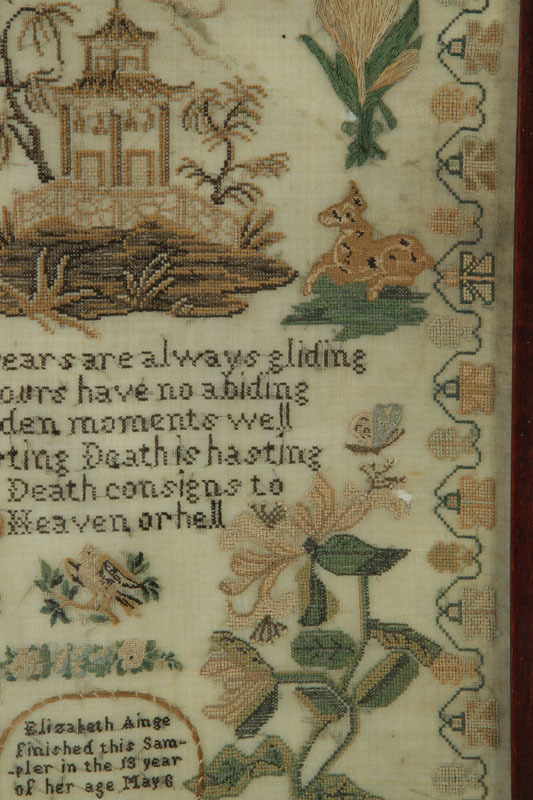 ears are always gliding
ours have no abiding
den moments well
ting Death is hasting
Death consigns to
Heaven or hell
Elizabeth Ainge
finished this Sam-
-pler in the 13 year
of her age May 8